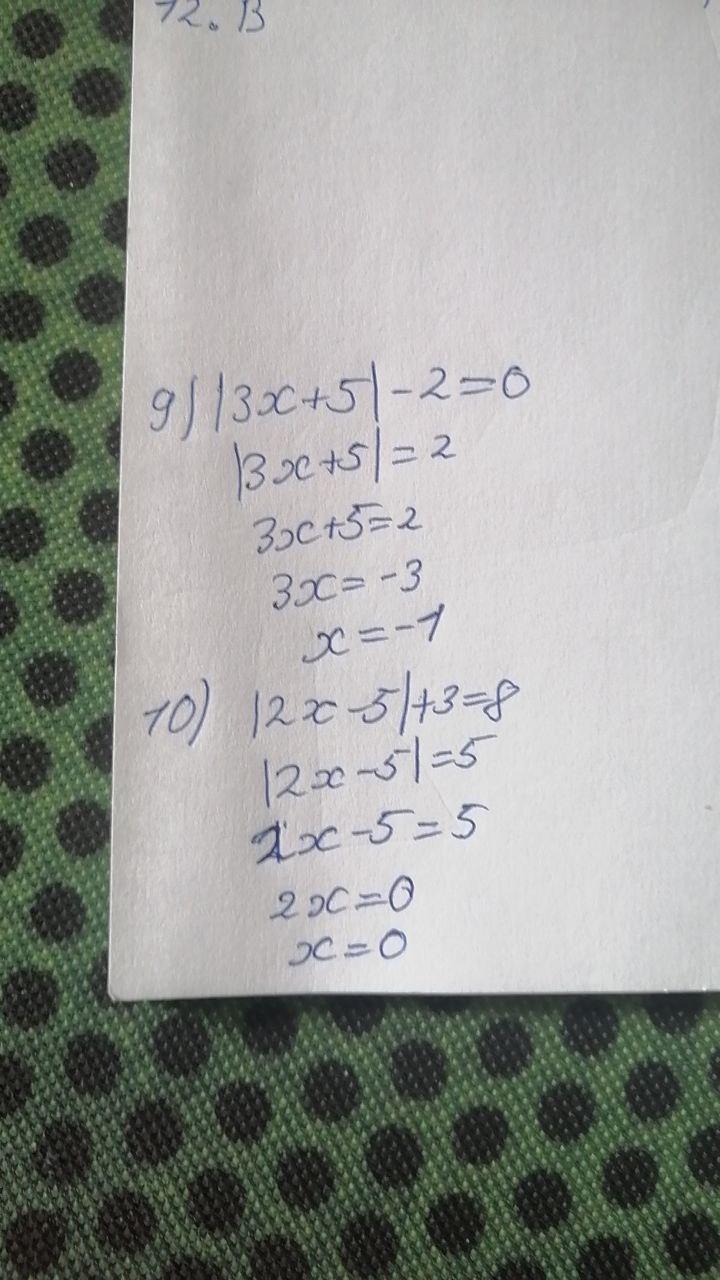 12. B
9) |3x+5|-2=0
|3x+5|=2
3x+5=2
3x=-3
x=-1
10) |2x-5|+3=8
|2x-5|=5
2x-5=5
2x=0
x=0